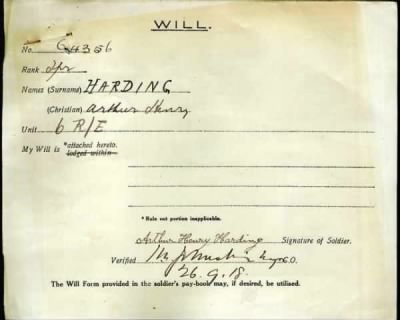 WILL.
No. C4356
Rank Tpr
Names (Surname) HARDING
(Christian) Arthur Henry
Unit 6 R/E
My Will is *attached hereto.
lodged within
* Rule not portion inapplicable.
Arthur Henry Harding Signature of Soldier.
Verified C.O.
26.9.18.
The Will Form provided in the soldier's pay-book may, if desired, be utilised.